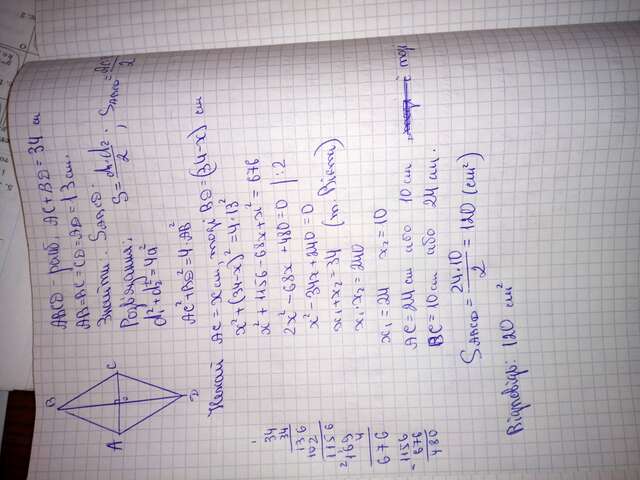 ABCD - ромб. AC+BD = 34 см
AB=BC=CD=AD = 13 см.
Знайти: S_ABCD.
Розв'язання:
d₁²+d₂² = 4a²
S = d₁·d₂/2
AC²+BD² = 4·AB²
Нехай AC = x см, тоді BD = (34-x) см
x²+(34-x)² = 4·13²
x²+1156-68x+x² = 676
2x²-68x+480=0 |:2
x²-34x+240=0
x₁+x₂ = 34 (т. Вієта)
x₁·x₂ = 240
x₁ = 24 x₂ = 10
AC = 24 см або 10 см
BC = 10 см або 24 см.
S_ABCD = 24·10/2 = 120 (см²)
Відповідь: 120 см²
B
A
C
D
34
34
136
102
1156
169
4
676
1156
676
480